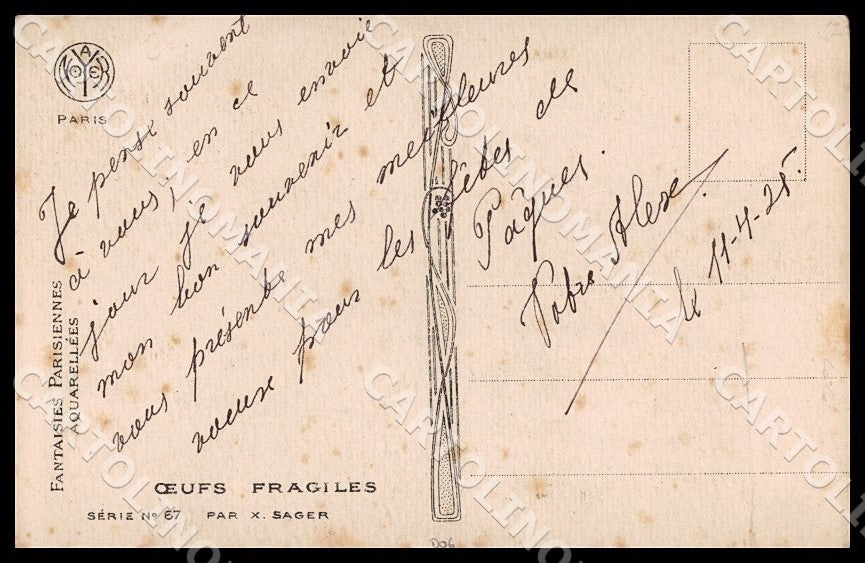 PARIS
Je pense souvent
à vous, en ce
jour je vous envoie
mon bon souvenir et
vous présente mes meilleures
voeux pour les fêtes de
Pâques.
Votre Alex.
le 11-4-25.
FANTAISIES PARISIENNES
AQUARELLÉES
ŒUFS FRAGILES
SÉRIE No 67 PAR X. SAGER
D06
CARTOLINOMANIA